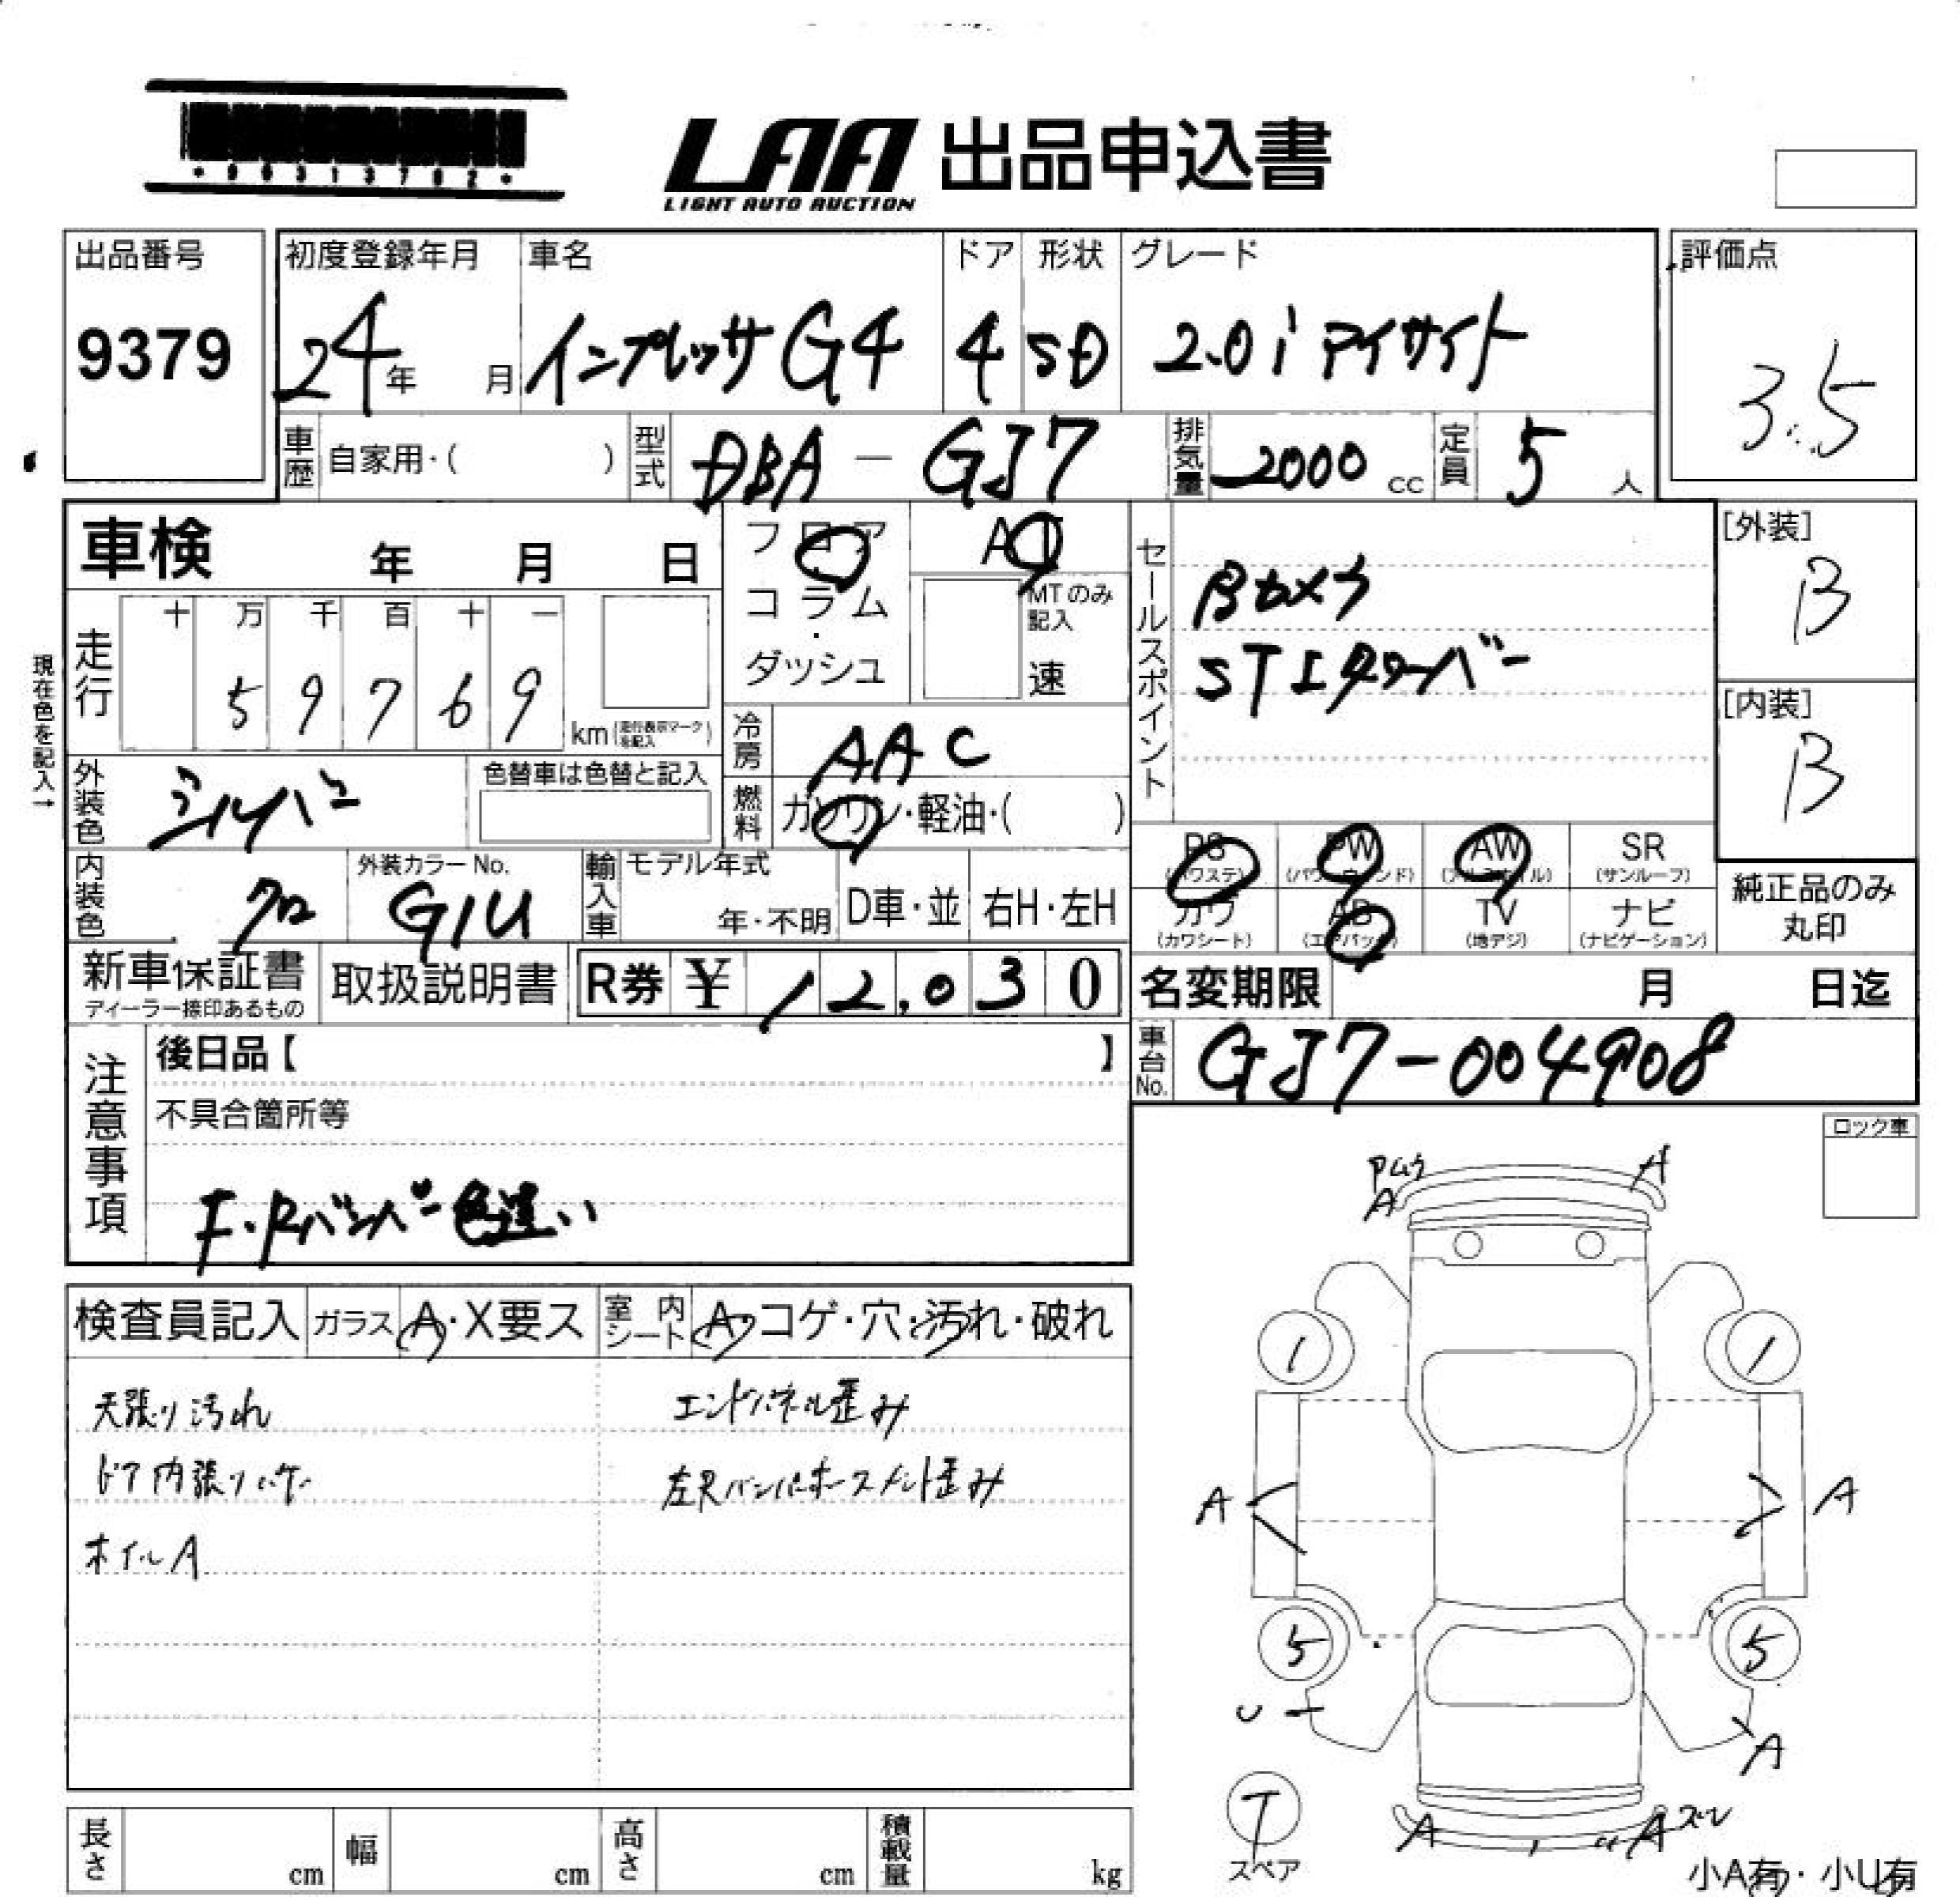 *90313702*
LAA 出品申込書
LIGHT AUTO AUCTION
出品番号
9379
初度登録年月
24年 月
車名
インプレッサG4
ドア
4
形状
SD
グレード
2.0i アイサイト
評価点
3.5
車歴 自家用・( )
型式 DBA - GJ7
排気量 2000 cc
定員 5 人
車検 年 月 日
フロア
コラム
ダッシュ
AT
MTのみ記入
速
セールスポイント
Bカメラ
STIタワーバー
[外装]
B
[内装]
B
現在色を記入→
走行
十 万 千 百 十 一
5 9 7 6 9
km (走行表示マークを記入)
冷房 AAC
燃料 ガソリン・軽油・( )
外装色 シルバー
色替車は色替と記入
内装色 クロ
外装カラーNo.
G1U
輸入車
モデル年式
年・不明
D車・並
右H・左H
PS
(パワステ)
PW
(パワーウィンド)
AW
(アルミホイル)
SR
(サンルーフ)
カワ
(カワシート)
AB
(エアバック)
TV
(地デジ)
ナビ
(ナビゲーション)
純正品のみ
丸印
新車保証書
ディーラー捺印あるもの
取扱説明書
R券 ¥ 12,030
名変期限 月 日迄
車台No. GJ7-004908
注意事項
後日品【 】
不具合箇所等
F・Rバンパー色違い
ロック車
検査員記入
ガラス A・X要ス
室内シート A・コゲ・穴・汚れ・破れ
天張り汚れ
エンドパネル歪み
ドア内張りハゲ
左Rバンパホースメント歪み
ホイルA
Pムラ
A
A
1
1
A
A
5
5
U
A
T
スペア
A
A ズレ
小A有・小U有
長さ cm
幅 cm
高さ cm
積載量 kg